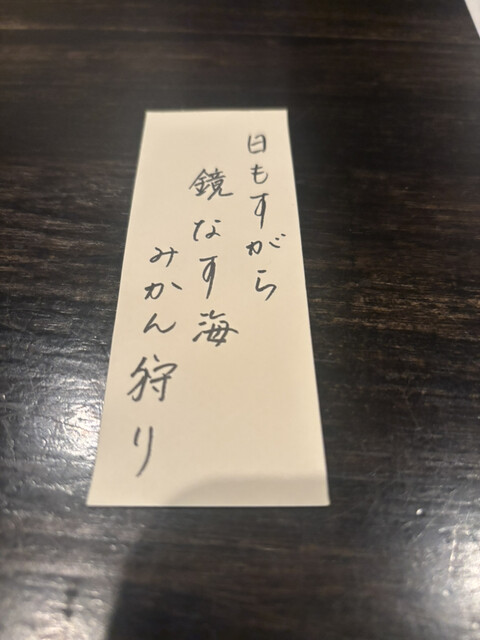 日もすがら
鏡なす海
みかん狩り